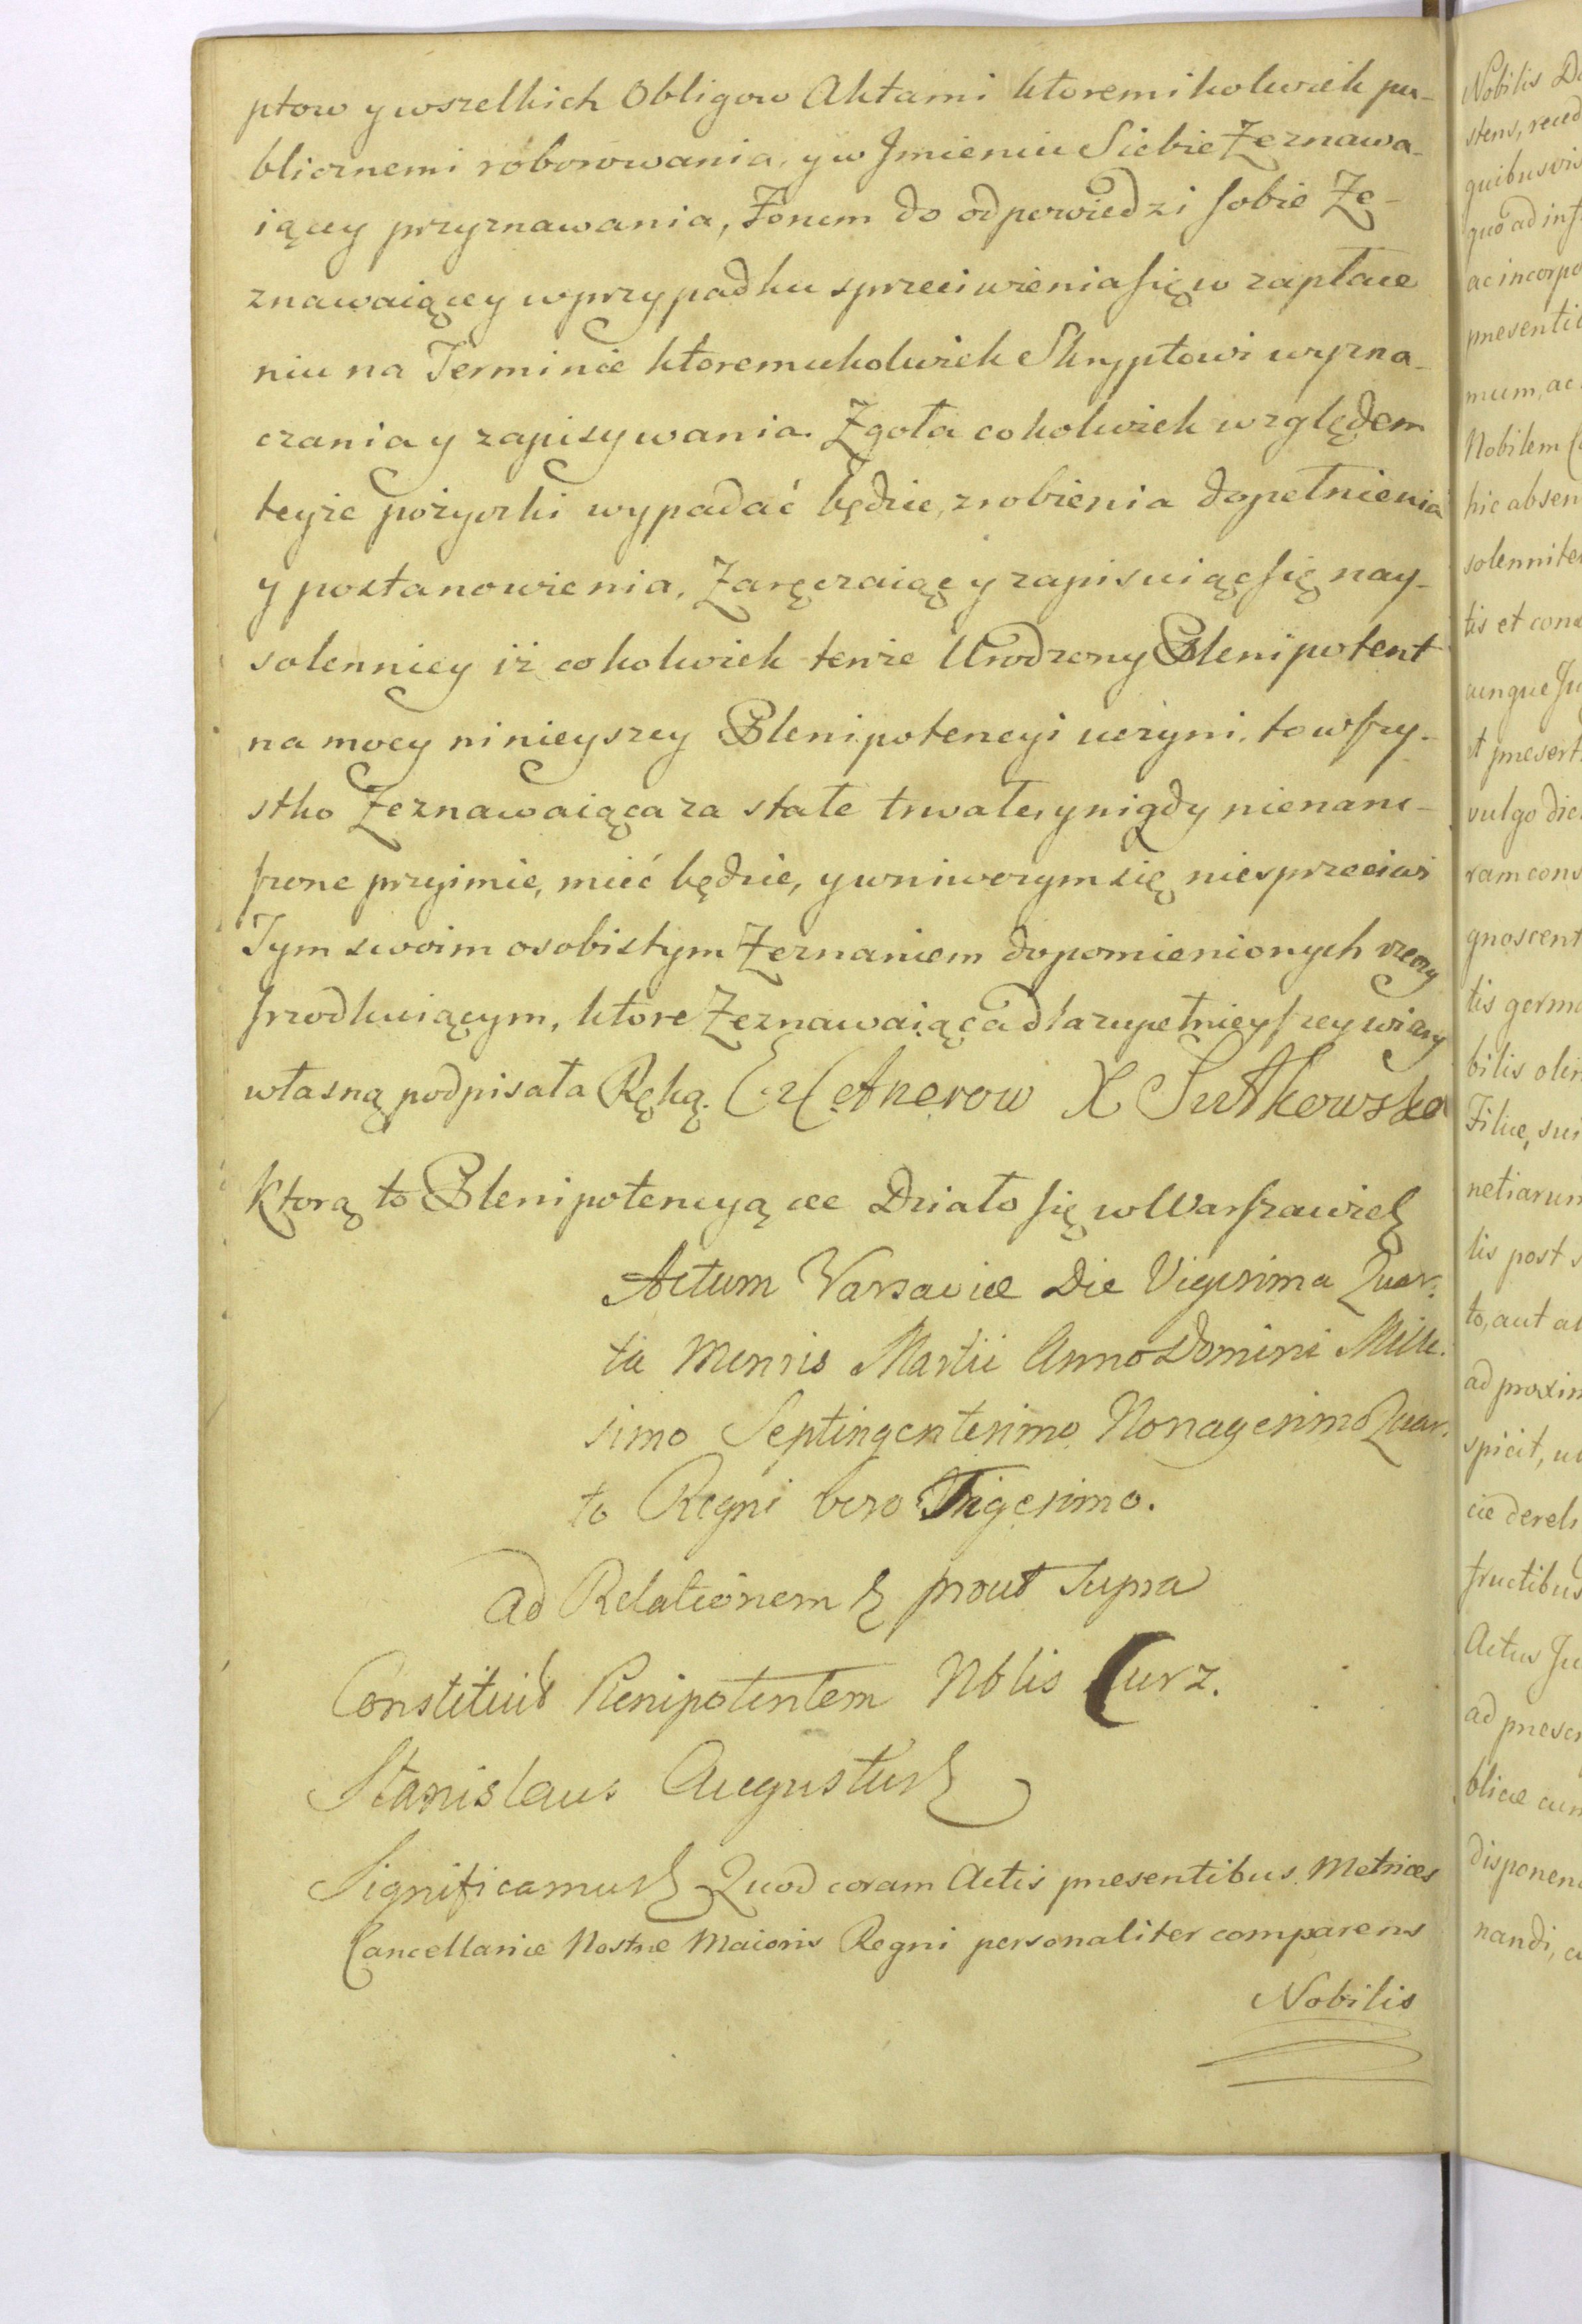 ptow y wszelkich Obligow Aktami ktoremikolwiek pu-
blicznemi roborowania, y w Jmieniu Siebie Zeznawa-
iącey przyznawania, Fonem do odpowiedzi sobie Ze-
znawaiącey w przypadku sprzeciwienia się w zapłace
niu na Terminie ktoremukolwiek Skryptowi wyzna-
czania y zapisywania. Zgoła cokolwiek względem
teyże pożyczki wypadać będzie, zrobienia dopełnienia
y postanowienia, Zaręczaiąc y zapisuiąc się nay-
solenniey iż cokolwiek tenże Urodzony Plenipotent
na mocy ninieyszey Plenipotencyi uczyni, to wszy-
stko Zeznawaiąca za stałe trwałe, y nigdy nienaru-
szone przyimie, mieć będzie, y w niwczym się nie sprzeciwi
Tym swoim osobistym Zeznaniem do pomienionych rzeczy
szrodkuiącym, ktore Zeznawaiąca dla zupełnieyszey wiary
własną podpisała Ręką. X Sułkowska
Ktorą to Plenipotencyą etc Działo się w Warszawie
Actum Varsaviæ Die Vigesima Quar-
ta Mensis Martii Anno Domini Mille-
simo Septingentesimo Nonagesimo Quar-
to Regni vero Trigesimo.
Ad Relationem & prout Supra
Constituit Plenipotentem Nblis Curz.
Stanislaus Augustus &
Significamus & Quod coram Actis præsentibus Metrices
Cancellariæ Nostræ Maioris Regni personaliter comparens
Nobilis
Nobilis
quibusvis
Nobilem
tis et
vulgo
lis post
to, aut
Actus
nandi,